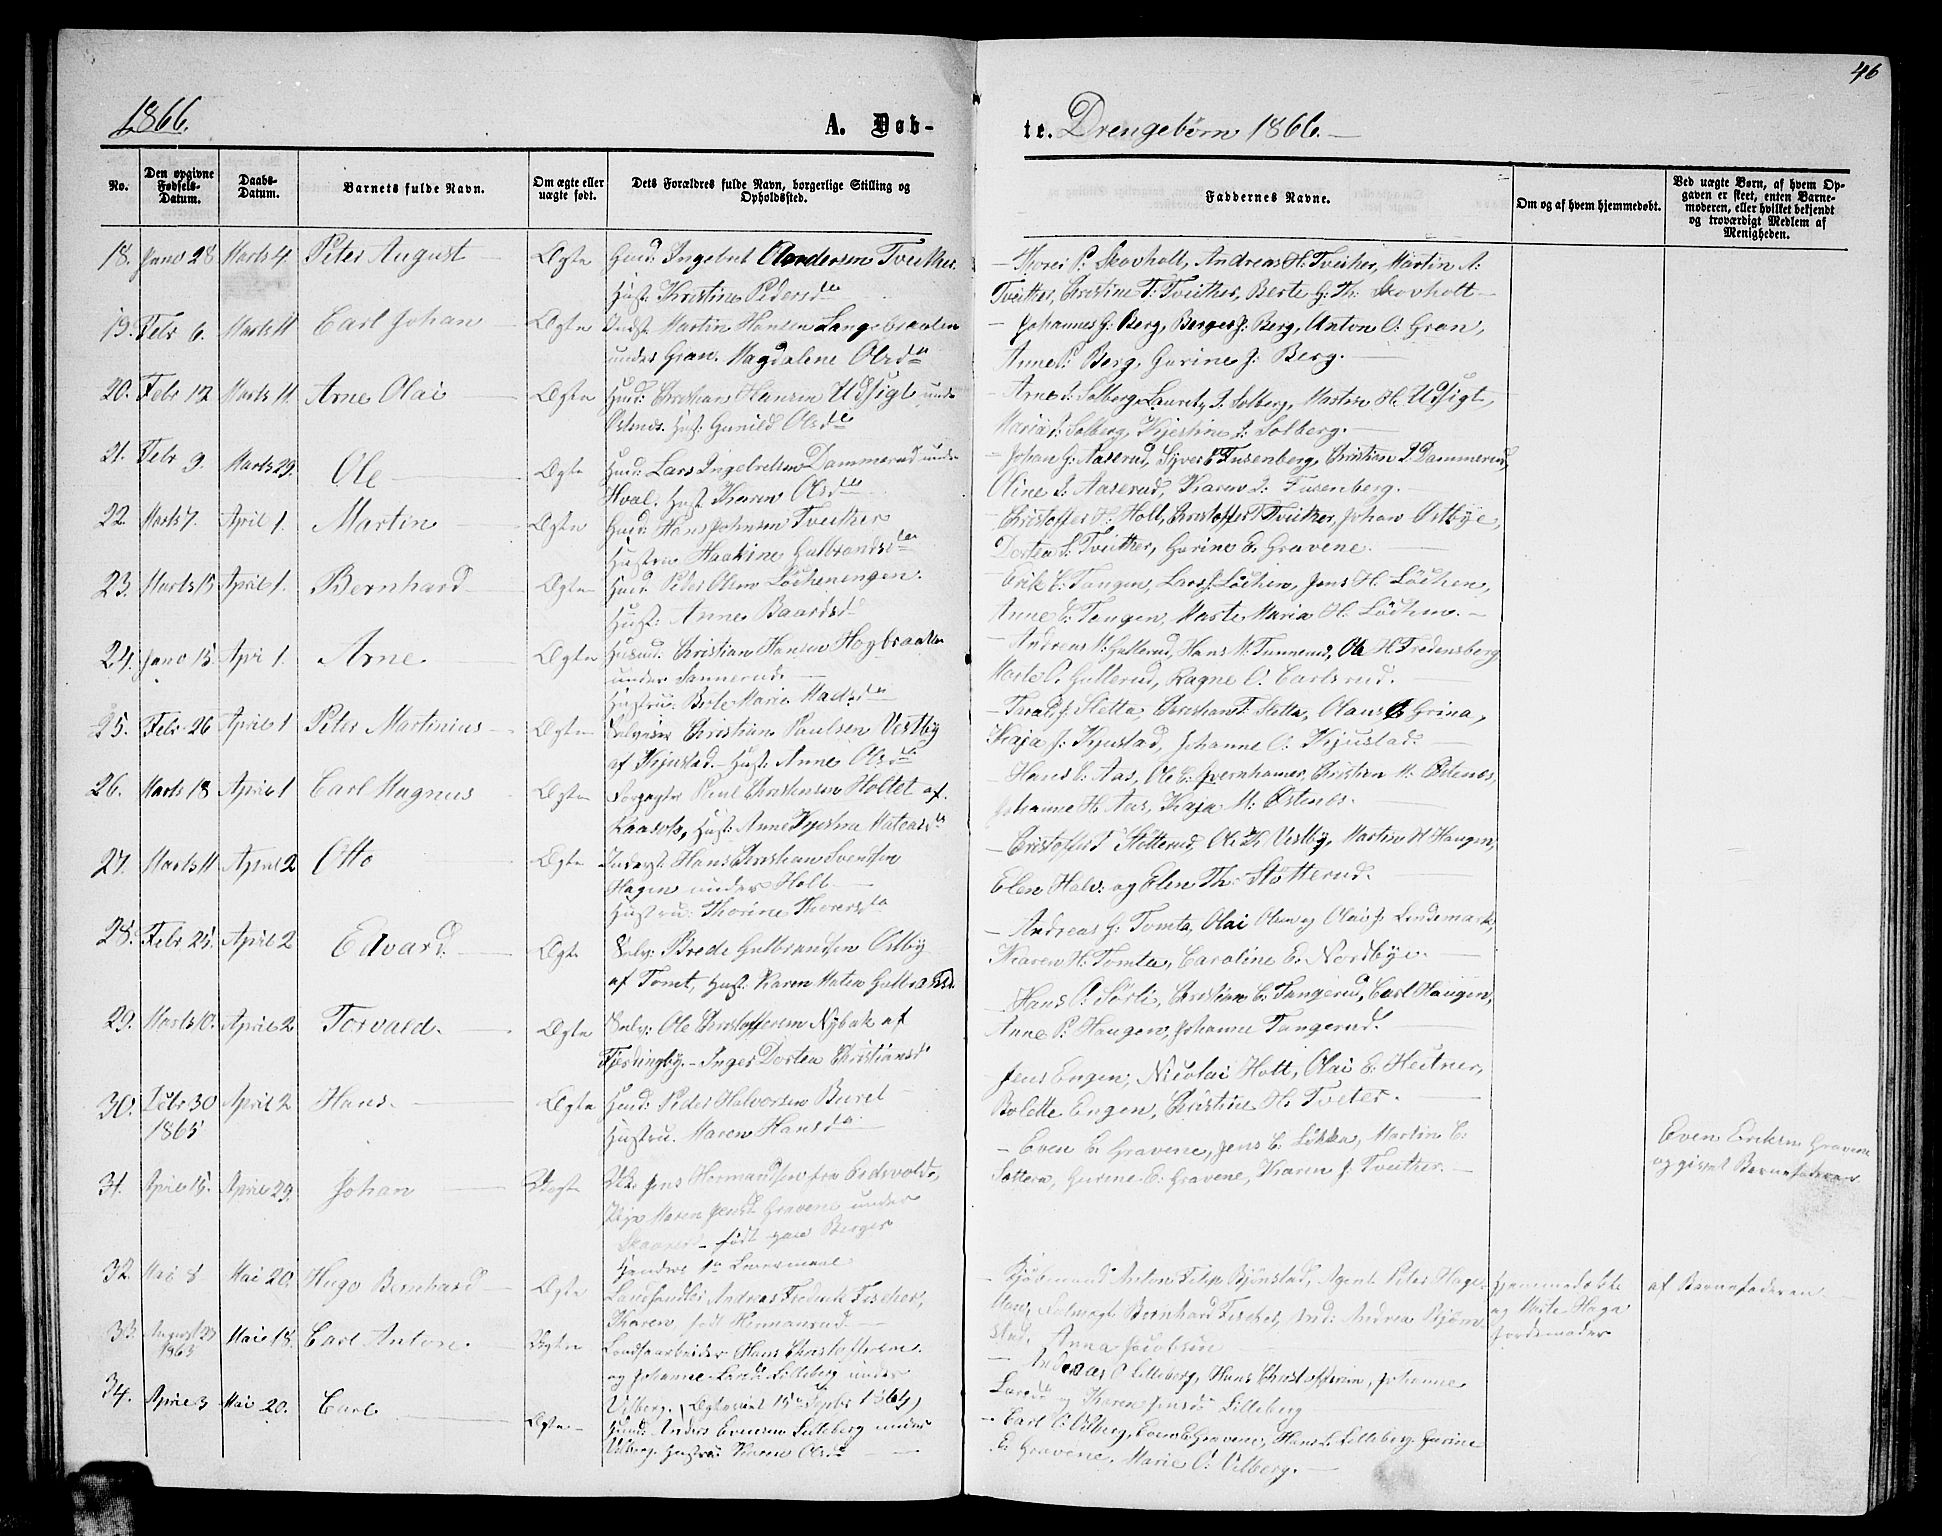 46
1866.
A. Døb-
te. Drengebørn 1866.
No.
Den opgivne Fødsels-Datum.
Daabs-Datum.
Barnets fulde Navn.
Om ægte eller uægte født.
Dets Forældres fulde Navn, borgerlige Stilling og Opholdssted.
Faddernes Navne.
Om og af hvem hjemmedøbt.
Ved uægte Børn, af hvem Opgaven er skeet, enten Barnemoderen, eller hvilket bekjendt og troværdigt Medlem af Menigheden.
18. Januar 28 Marts 4. Peter August Ægte Huusm: Ingebret Andersen Tveither.
Hust: Kristine Pedersd
Thorer P: Skovholt, Andreas H: Tveither, Martin A:
Tveither, Christine T: Tveither, Berte G: Th: Skovholt
19. Febr 6. Marts 11 Carl Johan Ægte Inderst Martin Hansen Langebraaten
under Gran. Magdalene Olsd
Johannes G: Berg, Berger J: Berg, Anton O: Gran,
Anne P: Berg, Gurine J: Berg.
20. Febr 12 Marts 11. Arne Olai Ægte Huusm: Christian Hansen Udsigt under
Østenes. Hust: Gunild Olsd
Arne L: Solberg, Lauretz L: Solberg, Martin H: Udsigt,
Maria L: Solberg, Kjerstine L: Solberg.
21. Febr 9. Marts 29. Ole Ægte Huusm: Lars Ingebretsen Dammerud under
Hval. Hust Karen Olsd
Johan G: Aaserud, Syver Fusenberg, Christian L Dammerud,
Oline L: Aaserud, Karen L: Fusenberg.
22. Marts 7. April 1. Martin Ægte Huusm: Hans Johnsen Tveither
Hustru Haakine Gulbrandsd
Christoffer H: Holt, Christoffer T Tveither, Johan Østbye,
Dortea L: Tveither, Gurine E. Gravene.
23. Marts 15 April 1. Bernhard Ægte Huusm: Peder Olsen Løchenengen.
Hust: Anne Baardsd
Erik E: Tangen, Lars J: Løchen, Jens H: Løchen,
Anne E: Tangen, Marte Maria H. Løchen.
24. Janu 15. Apr 1. Arne Ægte Huusm: Christian Hansen Hogbraaten
under Sannerud.
Hustru: Berte Marie Madsd
Andreas N: Gutterud, Hans N: Tunnerud, Ole H. Fredensberg
Marte O. Gutterud, Ragne O: Carlsrud.
25. Febr 26 April 1 Peter Martinius Ægte Selveier Christian Paulsen Vestby
af Kjustad. Hust: Anne Olsd
J: Sletta, Christian T: Sletta, Olaus Grina,
Kaja J: Kjustad, Johanne O. Kjustad.
26. Marts 18 April 1 Carl Magnus Ægte Forpagter Paul Christensen Holtet af
Hust: Anne Kjerstine
Hans E. Aas, Ole E: Christian M: Østenes,
Johanne H. Aas, Kaja M: Østenes.
27. Marts 11 April 2 Otto Ægte Inderst Hans Christian Svendsen
Hagen under Holt
Hustru: Thorine Thoresd
Christoffer T Støtterud, Ole H Vestby, Martin H Haugen,
Elen Halv: og Elen Th: Støtterud.
28. Febr 25. April 2 Edvard Ægte Selv: Brede Gulbrandsen Østby
af Tomt, Hust: Karen
Andreas G: Tomta, Olai Olsen og Olai J: Lindemark,
Karen H: Tomta, Caroline E. Nordbye.
29. Marts 10. April 2 Torvald. Ægte Selv: Ole Christoffersen Nybak af
Fjerdingby. Inger Dortea Christiansd
Hans O: Sørli, Christian E: Tangerud, Carl Haugen,
Anne P: Haugen, Johanne Tangerud.
30. Debr 30 1865 April 2 Hans. Ægte Huusm: Peder Halvorsen Buret
Hustru. Maren Hansd
Jens Engen, Nicolai Holt, Olai E. Heitner,
Bolette Engen, Christine H: Tveter.
31. April 15. April 29. Johan Uægte Jens Hermandsen fra Eidsvold,
Pige Maren Jensd Gravene under
født paa Berger
Even E: Gravene, Jens E. Løkken, Martin E:
Gurine E: Gravene, Karen J. Tveither.
Even Eriksen Gravene
opgivet Barnefaderen
32. Mai 8 Mai 20. Hugo Bernhard Ægte Landhandler Andreas Fredrik Fischer,
Karen født Hermansrud.
Kjøbmand Anton Bjønstad, Agent Peter
Bernhard Fischer, Andrea Bjøn-
stad, Anna Jacobsen
Hjemmedøbte
og Marte Haga
Jordemoder
af Barnefaderen
33. August 27 1863 Mai 18. Carl Anton. Uægte Landsarbeider Hans Christoffersen
og Johanne Larsd Lilleberg under
Vilberg. 1864
O Lilleberg, Hans Christoffersen, Johanne
Larsd og Karen Jensd Lilleberg
34. April 3 Mai 20. Carl Ægte Huusm: Anders Evensen Lilleberg under
Vilberg. Hustru: Karen Olsd
Carl O: Vilberg, Even E. Gravene, Hans L Lilleberg. Gurine
E: Gravene. Marie O: Vilberg.